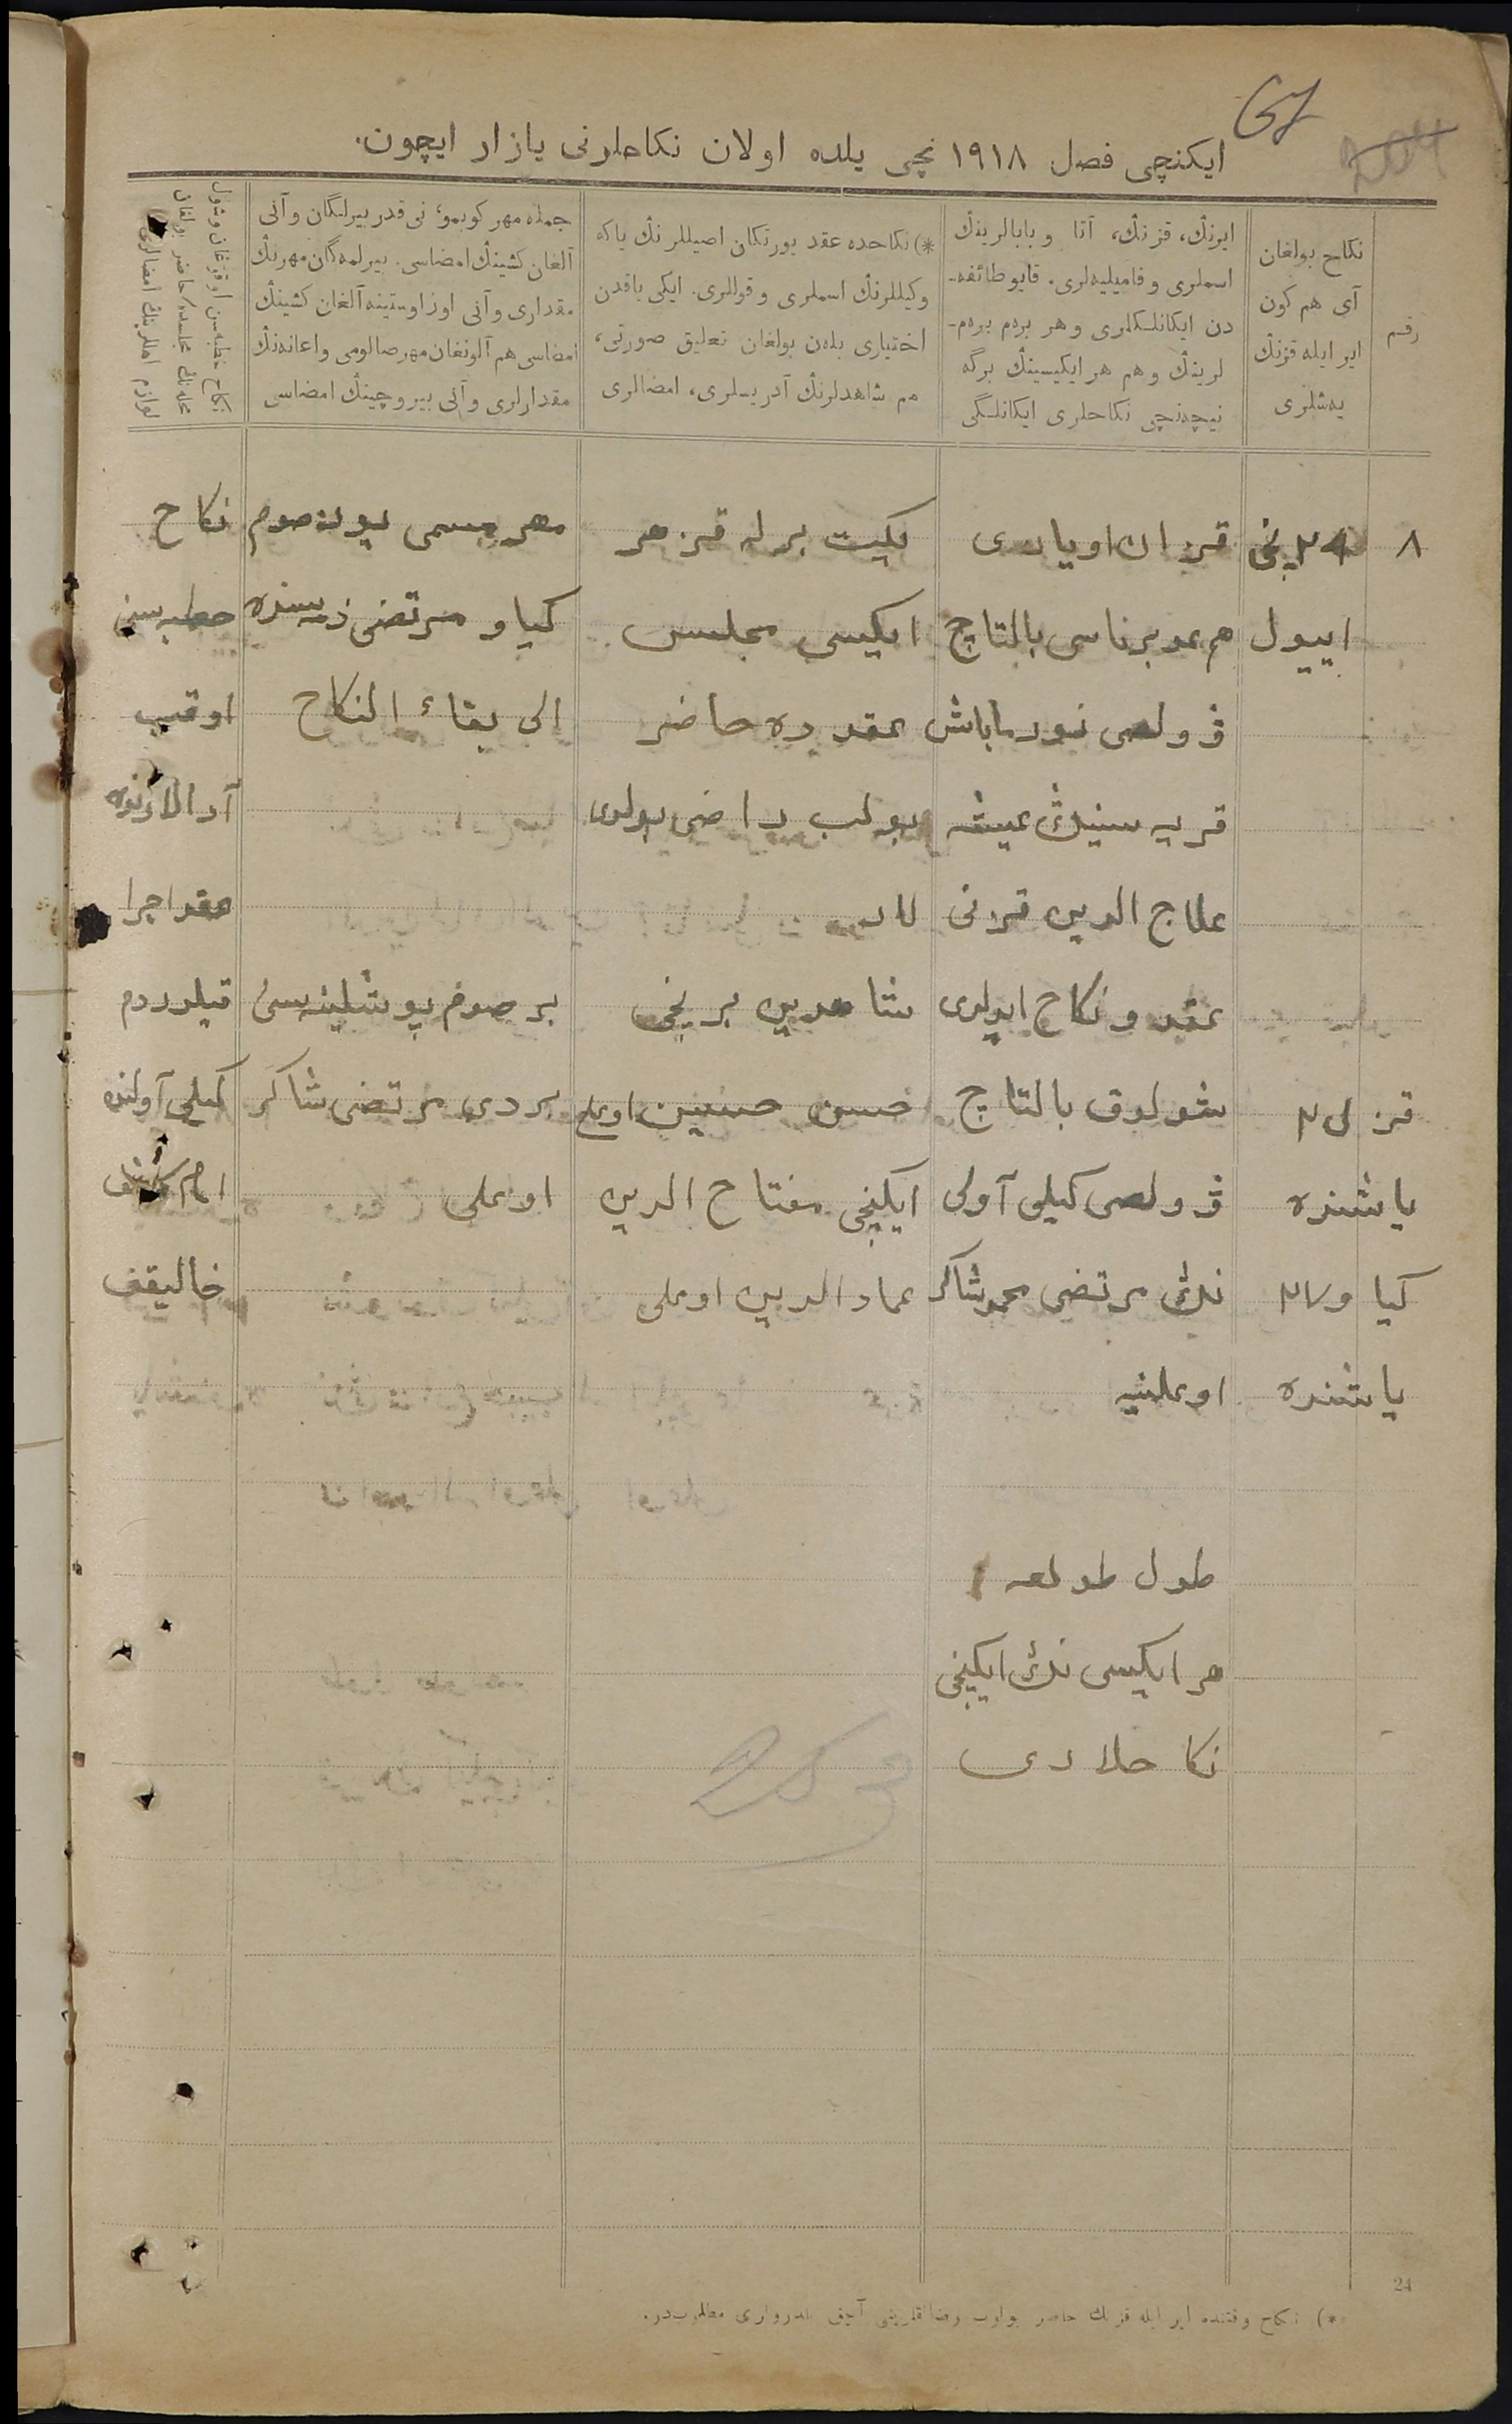 ایکنچی فصل ۱۹۱۸ نچی یلده اولان نکاحلرنی یازار ایچون.
رقم
نکاح بولغان
آی هم کون
ایر ایله قزنڭ
یەشلری
ایرنڭ، قزنڭ، آتا و بابالرینڭ
اسملری و فامیلیەلری. قایو طائفە-
دن ایکانلکلری و هر برەم برەم-
لرینڭ و هم هر ایکیسینڭ برگه
نیچەنچی نکاحلری ایکانلگی
*) نکاحده عقد یورتکان اصیللرنڭ یاکه
وکیللرنڭ اسملری و قوللری. ایکی یاقدن
اختیاری بلەن بولغان تعلیق صورتی،
هم شاهدلرنڭ آدریسلری، امضالری
جملە مهر کوبمو، نی قدر بیرلگان و آنی
آلغان کشینڭ امضاسی. بیرلمەگان مهرنڭ
مقداری و آنی اوز اوستینه آلغان کشینڭ
امضاسی هم آلونغان مهر صالومی و اعانەنڭ
مقدارلری و آنی بیروچینڭ امضاسی
نکاح خطبەسن اوقوغان و شول
محلەنڭ مجلسده حاضر بولغان
لوازم اهللرینڭ امضالری
۸
نچی
اییول
قز
یاشنده
کیاو ۲۷
یاشنده
قزان اویازی
هم غوبرناسی بالتاچ
ۋولصی نورساباش
قریه سینڭ عیشه
علاج الدین قزنی
عقد و نکاح ایولدی
شولوق بالتاچ
ۋولصی کیلی آولی
نڭ مرتضی محمدشاکر
اوغلنیه
طول طولغه
هر ایکیسی نڭ ایکینچی
نکاحلاری
یکیت برله قز هر
ایکیسی مجلس
عقدده حاضر
بولب راضی بولدی
لار
شاهدین برینچی
حسن حسین اوغلی
ایکینچی مفتاح الدین
عماد الدین اوغلی
مهر مسمی یوز صوم
کیاو مرتضی ذمه سنده
الی بقاء النکاح
بر صوم پوشلینه سن
بردی مرتضی شاکر
اوغلی
نکاح
خطبه سن
اوقب
آرالارنده
عقد اجرا
قیلدردم
کیلی آولنده
امام
خالیقف
24
*) نکاح وقتنده ایر ایله قزنڭ حاضر بولوب رضالقلرینی آچق بلدرولری مطلوبدر.